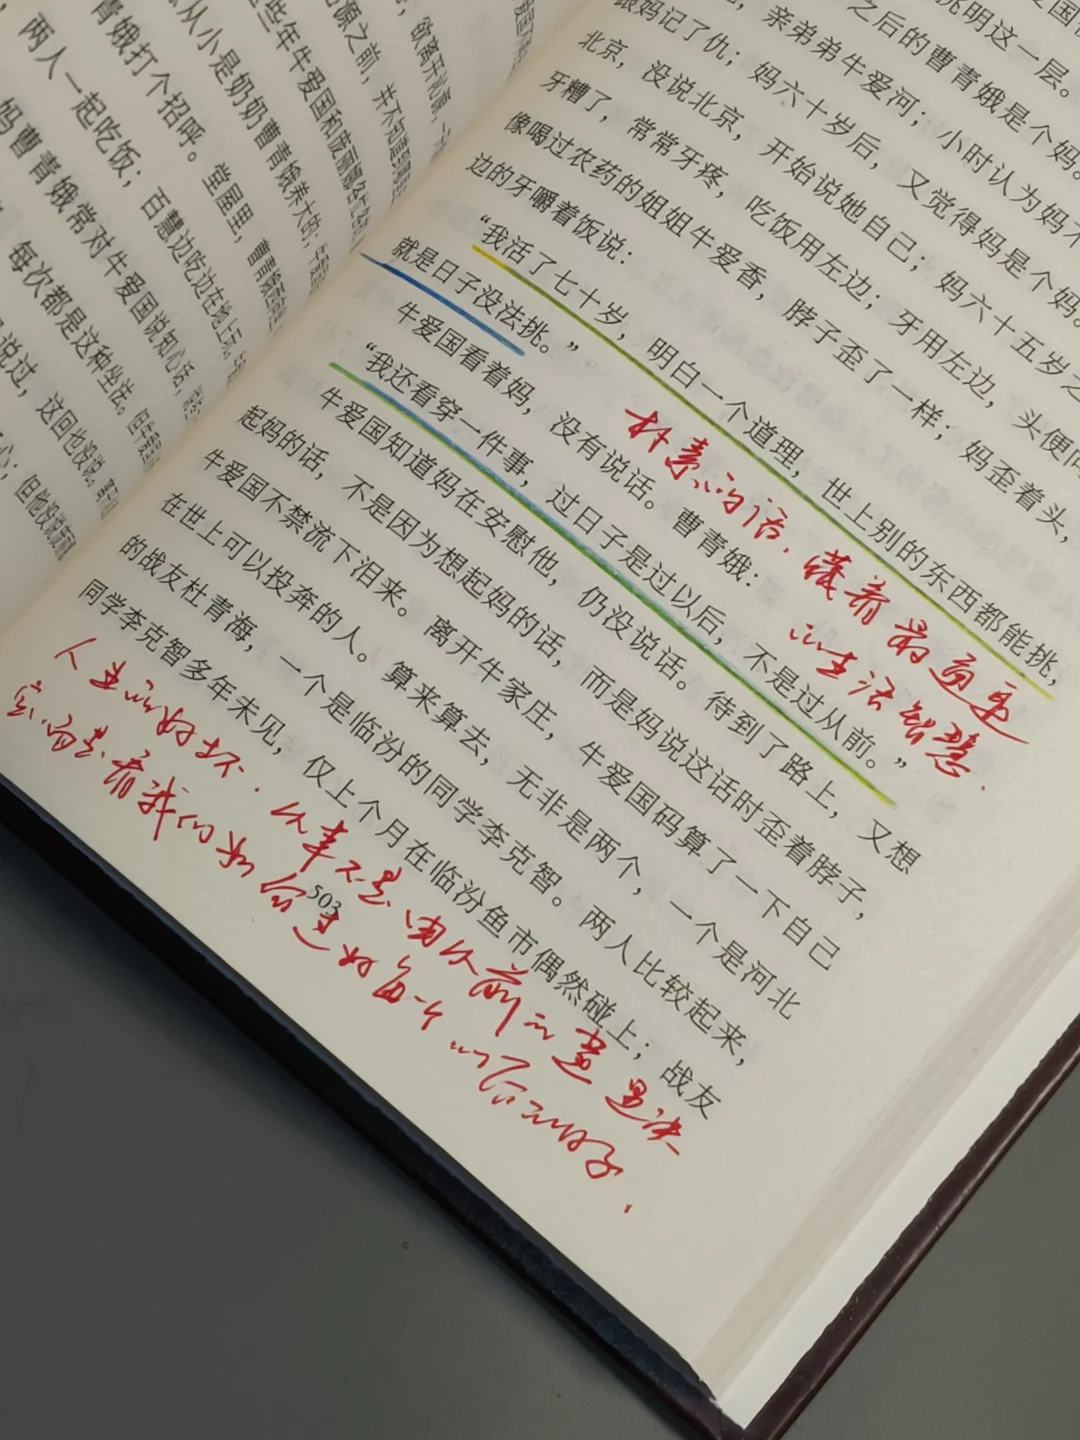 欲离开沁源，
源之前，并不知道
些年牛爱国和庞丽娜
从小是奶奶曹青娥养大的；
青娥打个招呼。堂屋里，曹青娥
两人一起吃饭；百慧边吃边在地上
妈曹青娥常对牛爱国说知心话，
每次都是这种坐法。但
说过，这回也没说。
心；但他没
挑明这一层。
之后的曹青娥是个妈。
亲弟弟牛爱河；小时认为妈不
跟妈记了仇；妈六十岁后，又觉得妈是个妈。
北京，没说北京，开始说她自己；妈六十五岁之
牙糟了，常常牙疼，吃饭用左边；牙用左边，头便向
像喝过农药的姐姐牛爱香，脖子歪了一样；妈歪着头，
边的牙嚼着饭说：
“我活了七十岁，明白一个道理，世上别的东西都能挑，
就是日子没法挑。”
牛爱国看着妈，没有说话。曹青娥：
“我还看穿一件事，过日子是过以后，不是过从前。”
牛爱国知道妈在安慰他，仍没说话。待到了路上，又想
起妈的话，不是因为想起妈的话，而是妈说这话时歪着脖子，
牛爱国不禁流下泪来。离开牛家庄，牛爱国码算了一下自己
在世上可以投奔的人。算来算去，无非是两个，一个是河北
的战友杜青海，一个是临汾的同学李克智。两人比较起来，
同学李克智多年未见，仅上个月在临汾鱼市偶然碰上；战友
503
朴素的话，藏着最通透
的生活智慧.
人生的好坏，从来不是由从前的遭遇决
定，而是看我们如何过好每一个以后的日子.